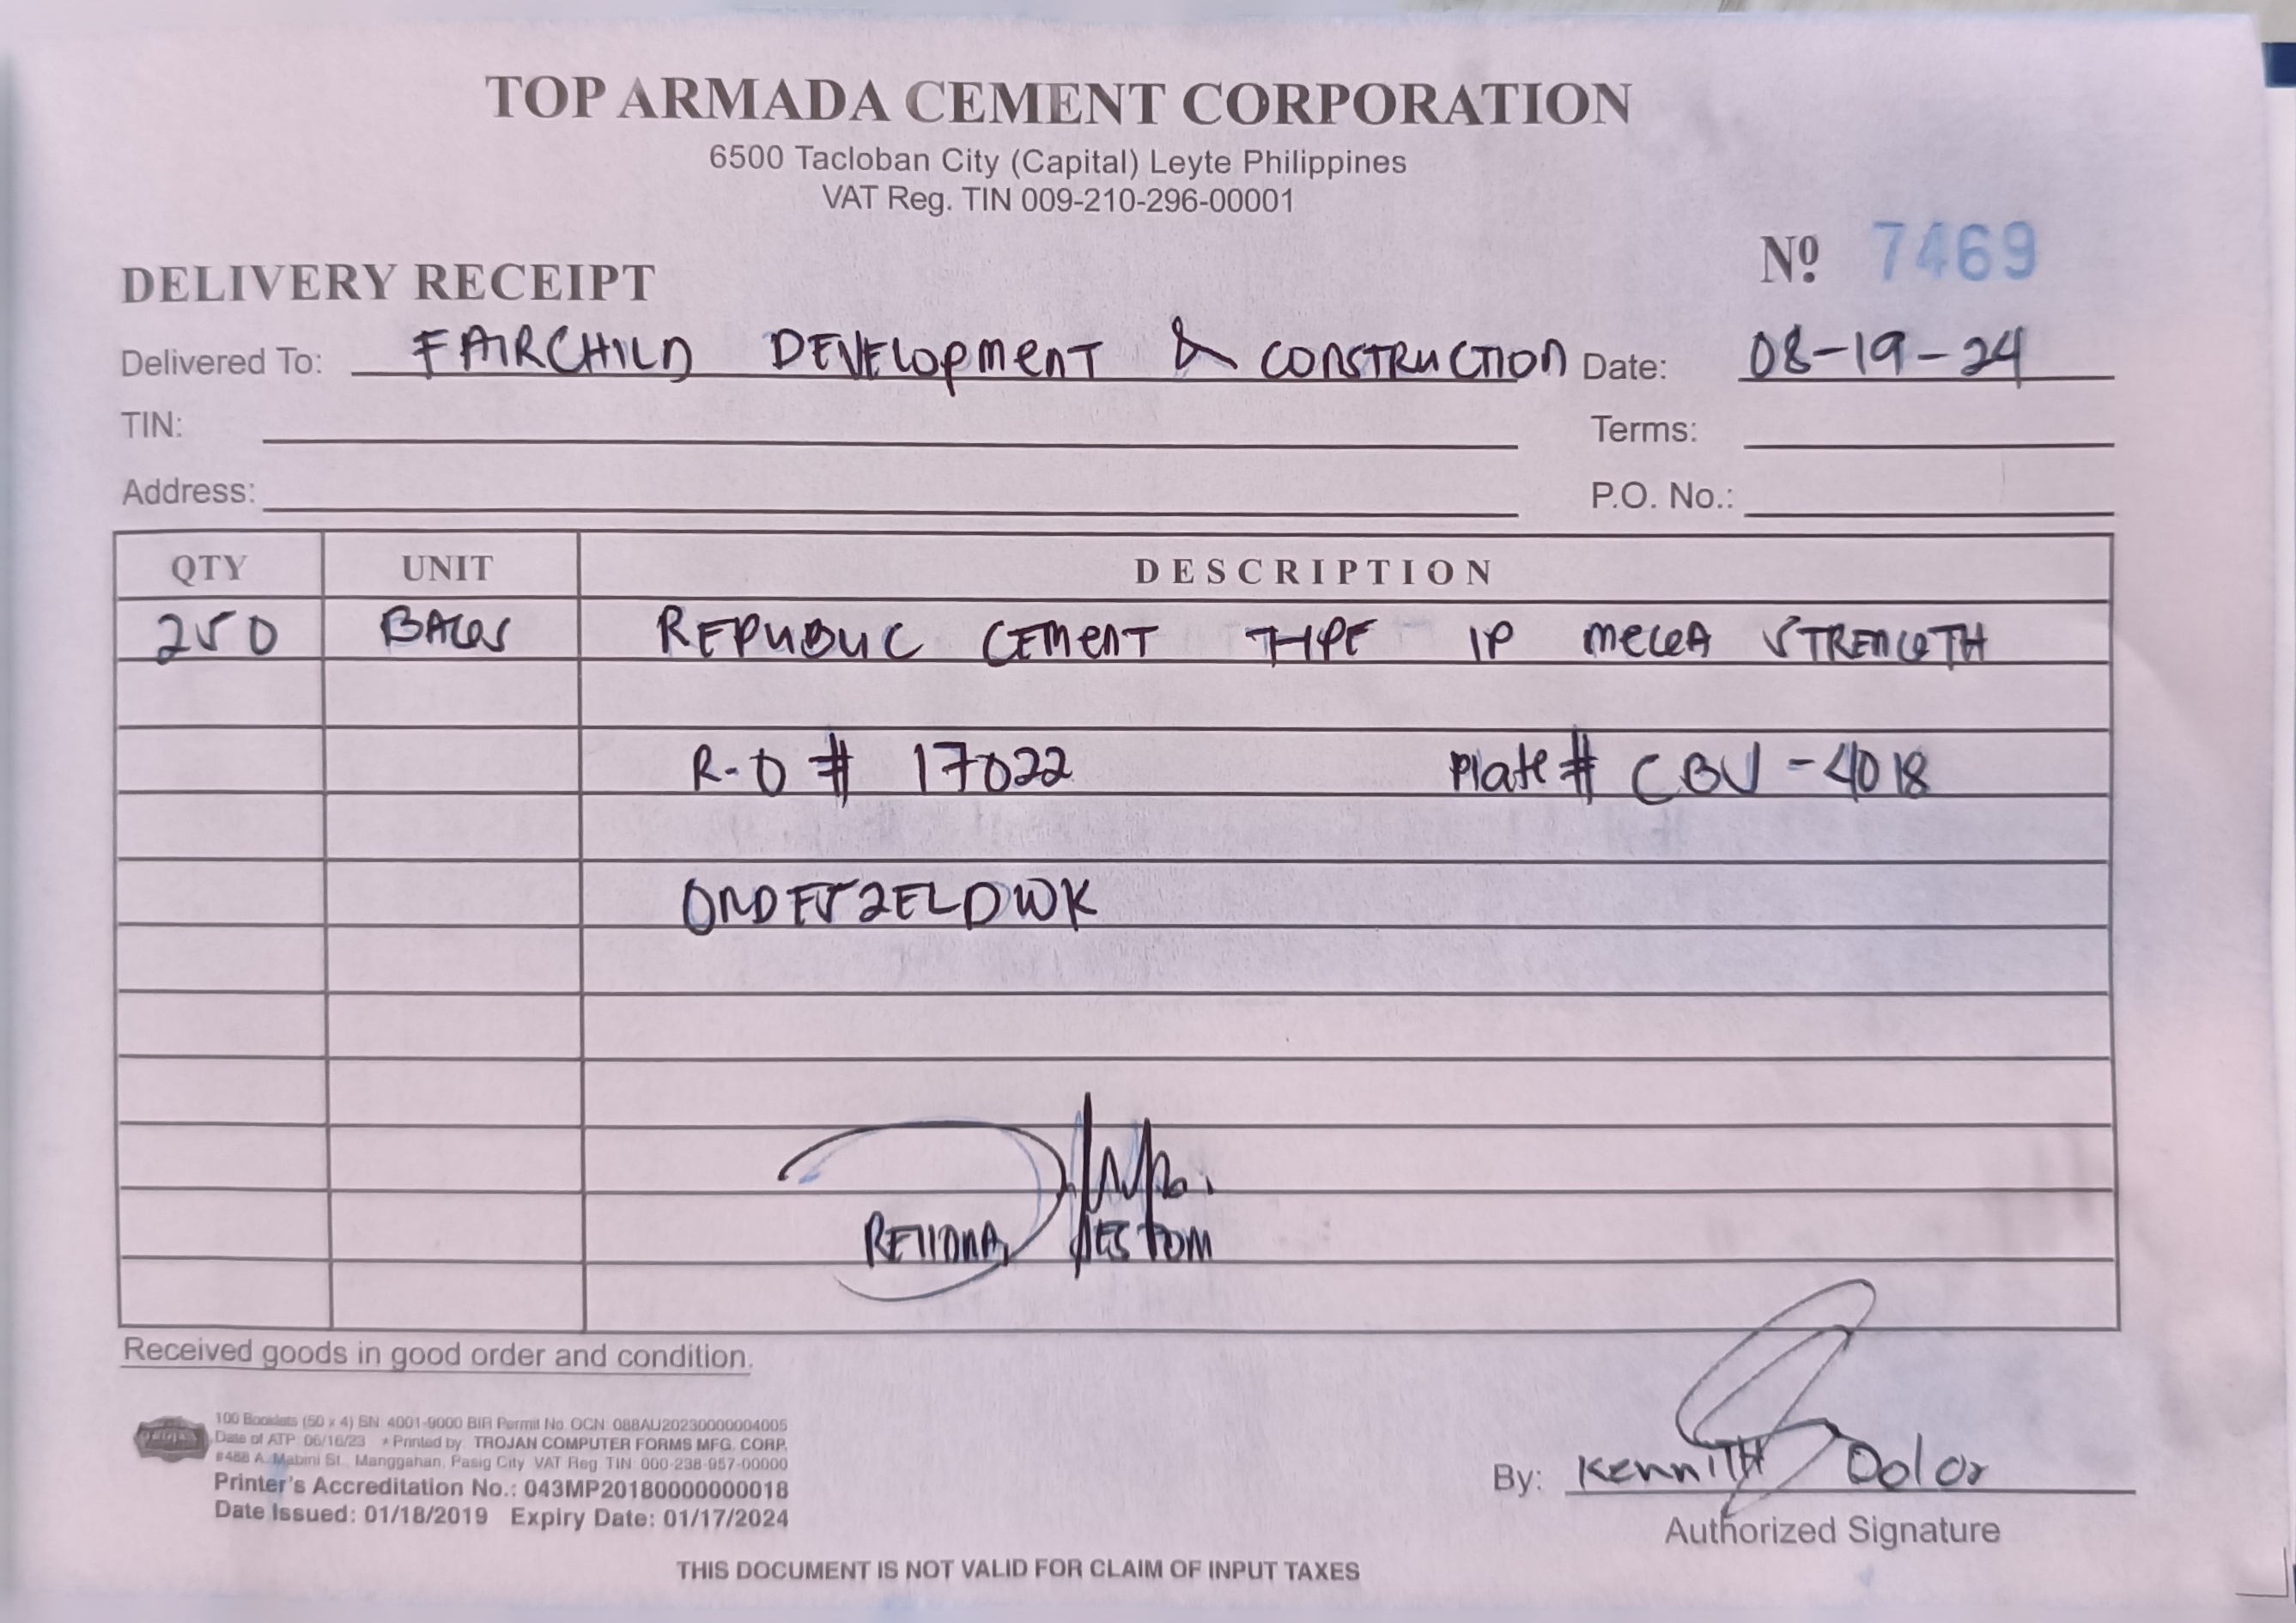 TOP ARMADA CEMENT CORPORATION
6500 Tacloban City (Capital) Leyte Philippines
VAT Reg. TIN 009-210-296-00001
Nº 7469
DELIVERY RECEIPT
Delivered To: FAIRCHILD DEVELOPMENT & CONSTRUCTION Date: 08-19-24
TIN: Terms:
Address: P.O. No.:
QTY UNIT DESCRIPTION
250 BAGS REPUBLIC CEMENT TYPE 1P MEGA STRENGTH
R-O # 17022 Plate # CBU-4018
ORDER52ELDWK
Received goods in good order and condition.
100 Booklets (50 x 4) SN 4001-9000 BIR Permit No. OCN: 088AU20230000004005
Date of ATP: 06/16/23 * Printed by: TROJAN COMPUTER FORMS MFG. CORP.
#488 A. Mabini St., Manggahan, Pasig City VAT Reg TIN: 000-238-957-00000
Printer's Accreditation No.: 043MP20180000000018
Date Issued: 01/18/2019 Expiry Date: 01/17/2024
By: Kennith Dolor
Authorized Signature
THIS DOCUMENT IS NOT VALID FOR CLAIM OF INPUT TAXES